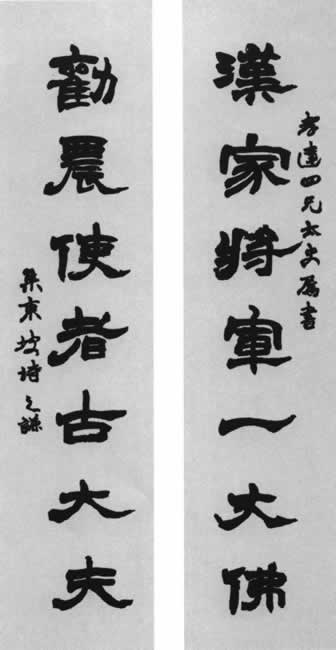 孝達四兄太史属書
漢家將軍一丈佛
勸農使者古大夫
集東坡詩之謙